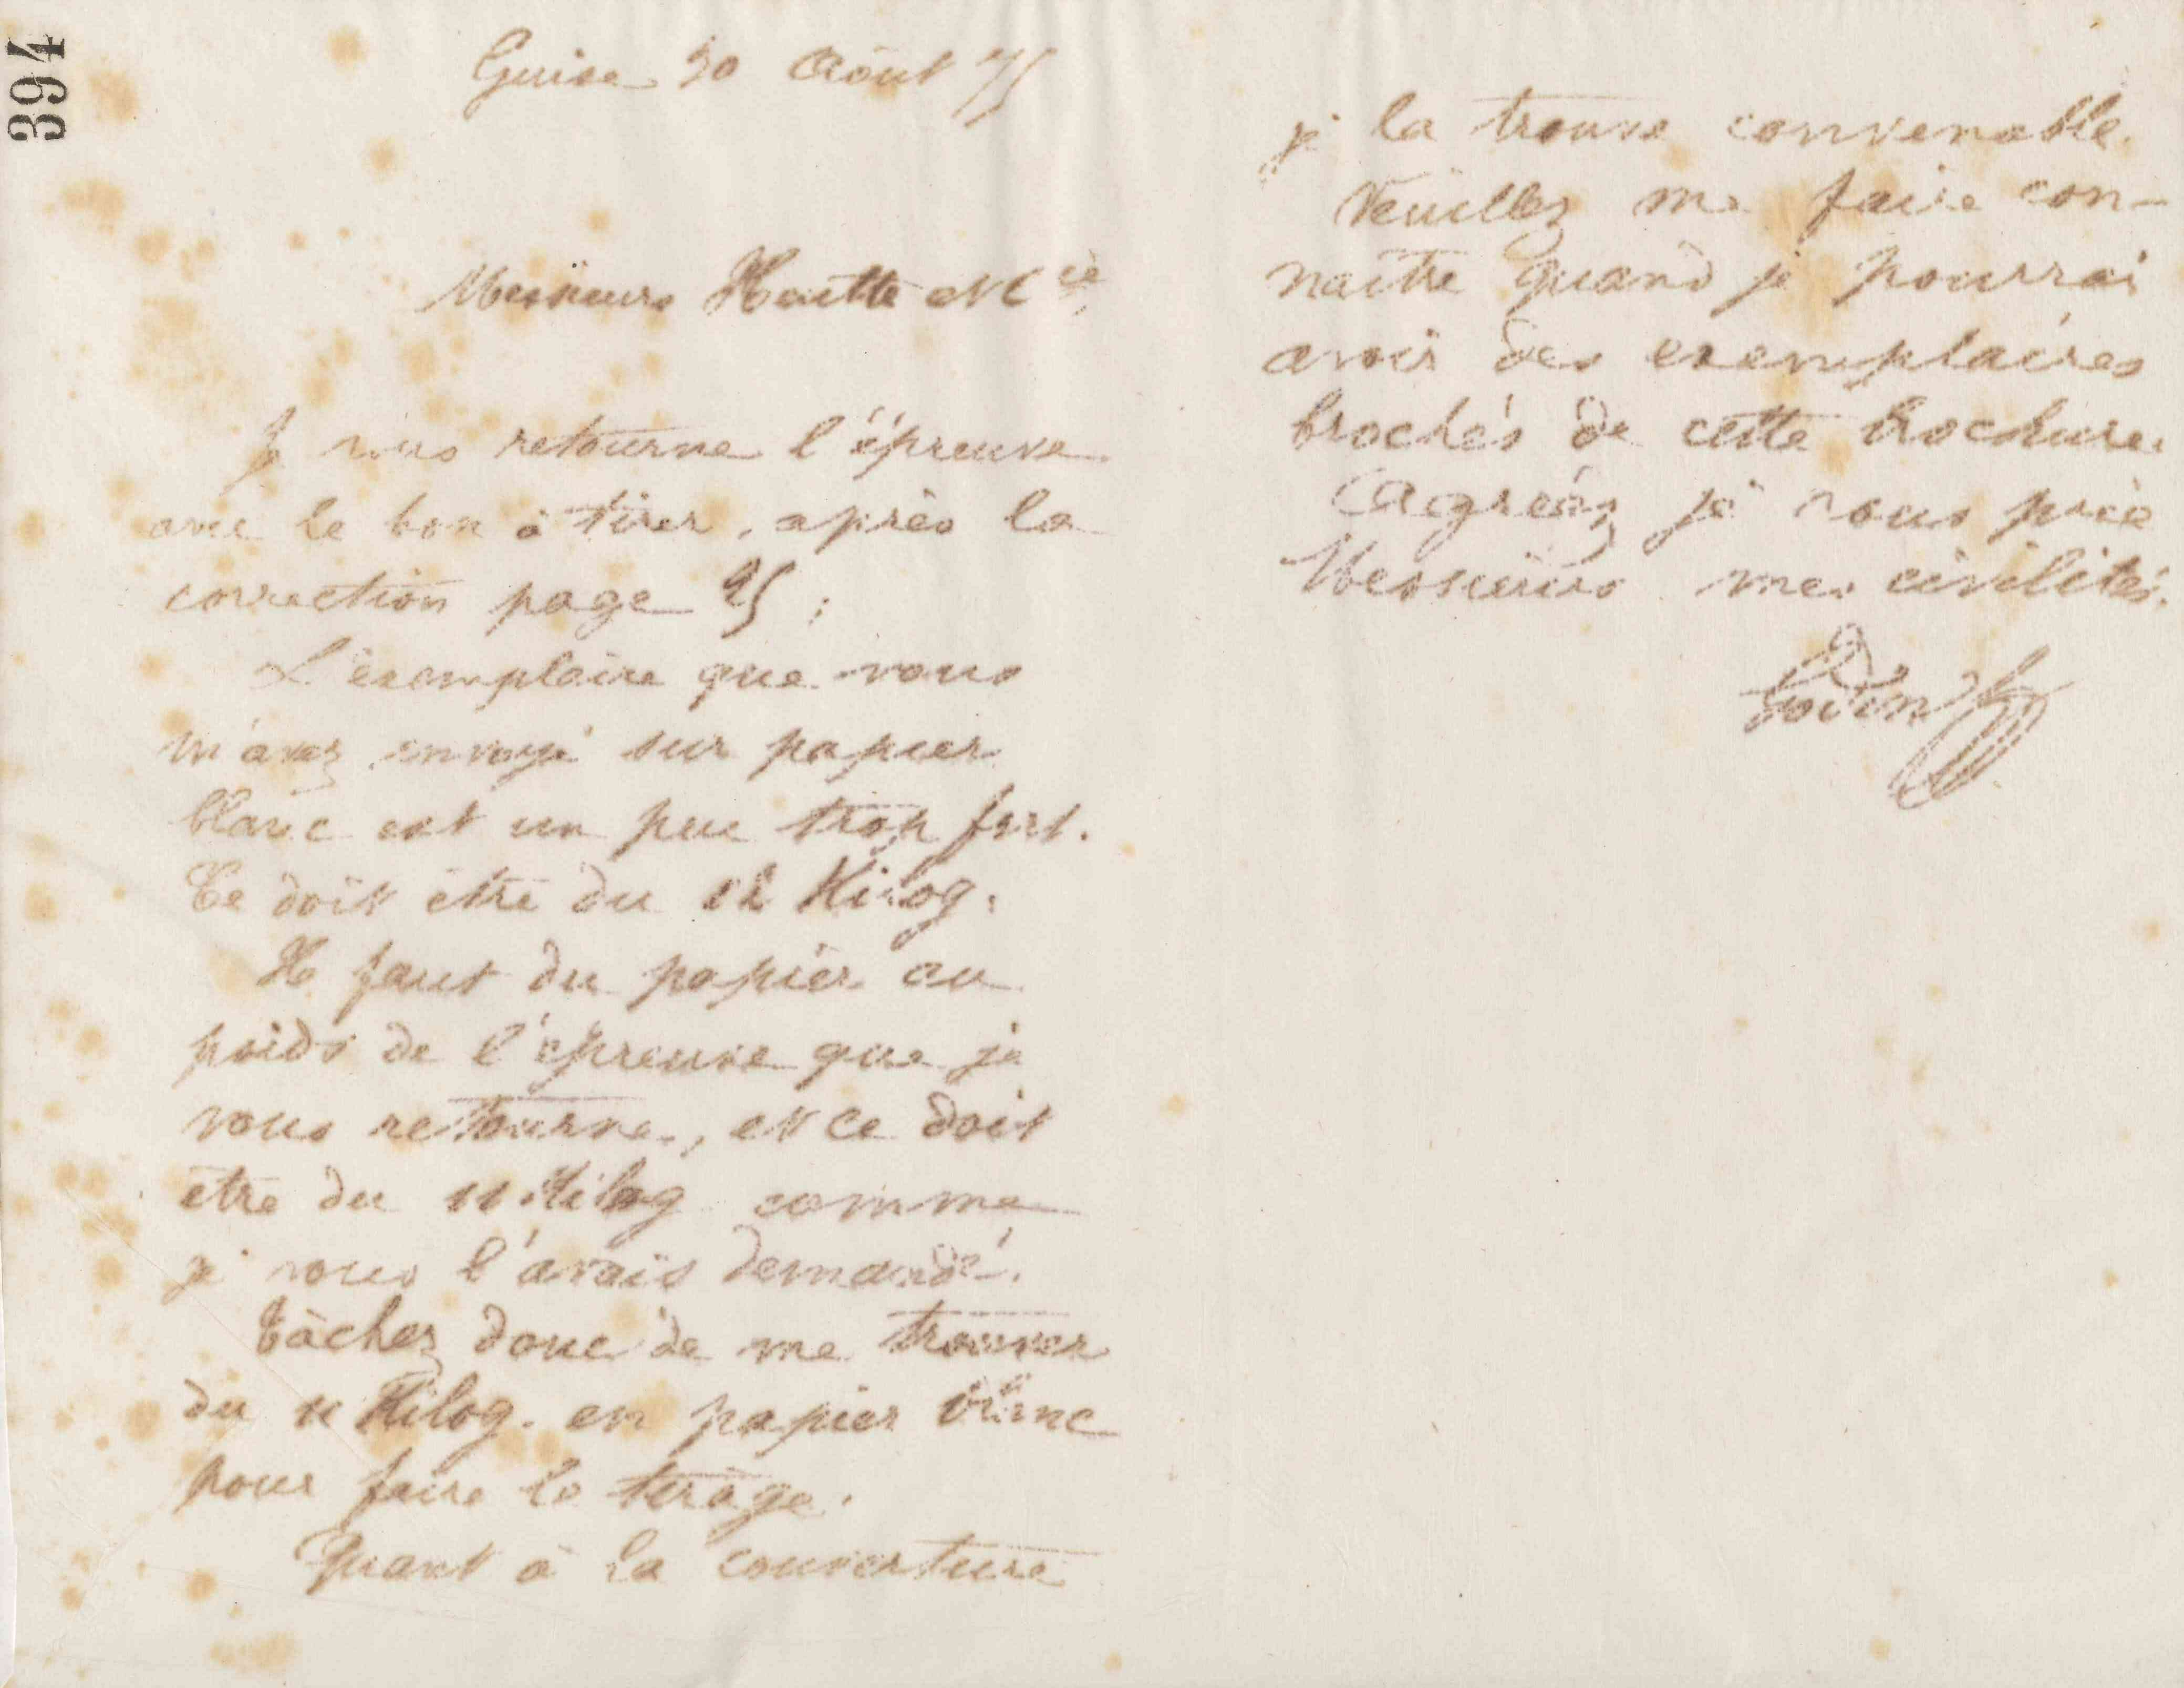 394
Guise 30 Août 75
Messieurs Haette et Cie,
Je vous retourne l'épreuve
avec le bon à tirer, après la
correction page 25 ;
L'exemplaire que vous
m'avez envoyé sur papier
blanc est un peu trop fort.
Ce doit être du 12 Kilog.
Il faut du papier au
poids de l'épreuve que je
vous retourne, et ce doit
être du 11 Kilog comme
je vous l'avais demandé.
Tâchez donc de me trouver
du 11 Kilog. en papier blanc
pour faire le tirage.
Quant à la couverture
je la trouve convenable.
Veuillez me faire con-
naître quand je pourrai
avoir des exemplaires
brochés de cette brochure.
Agréez je vous prie
Messieurs mes civilités.
Godin